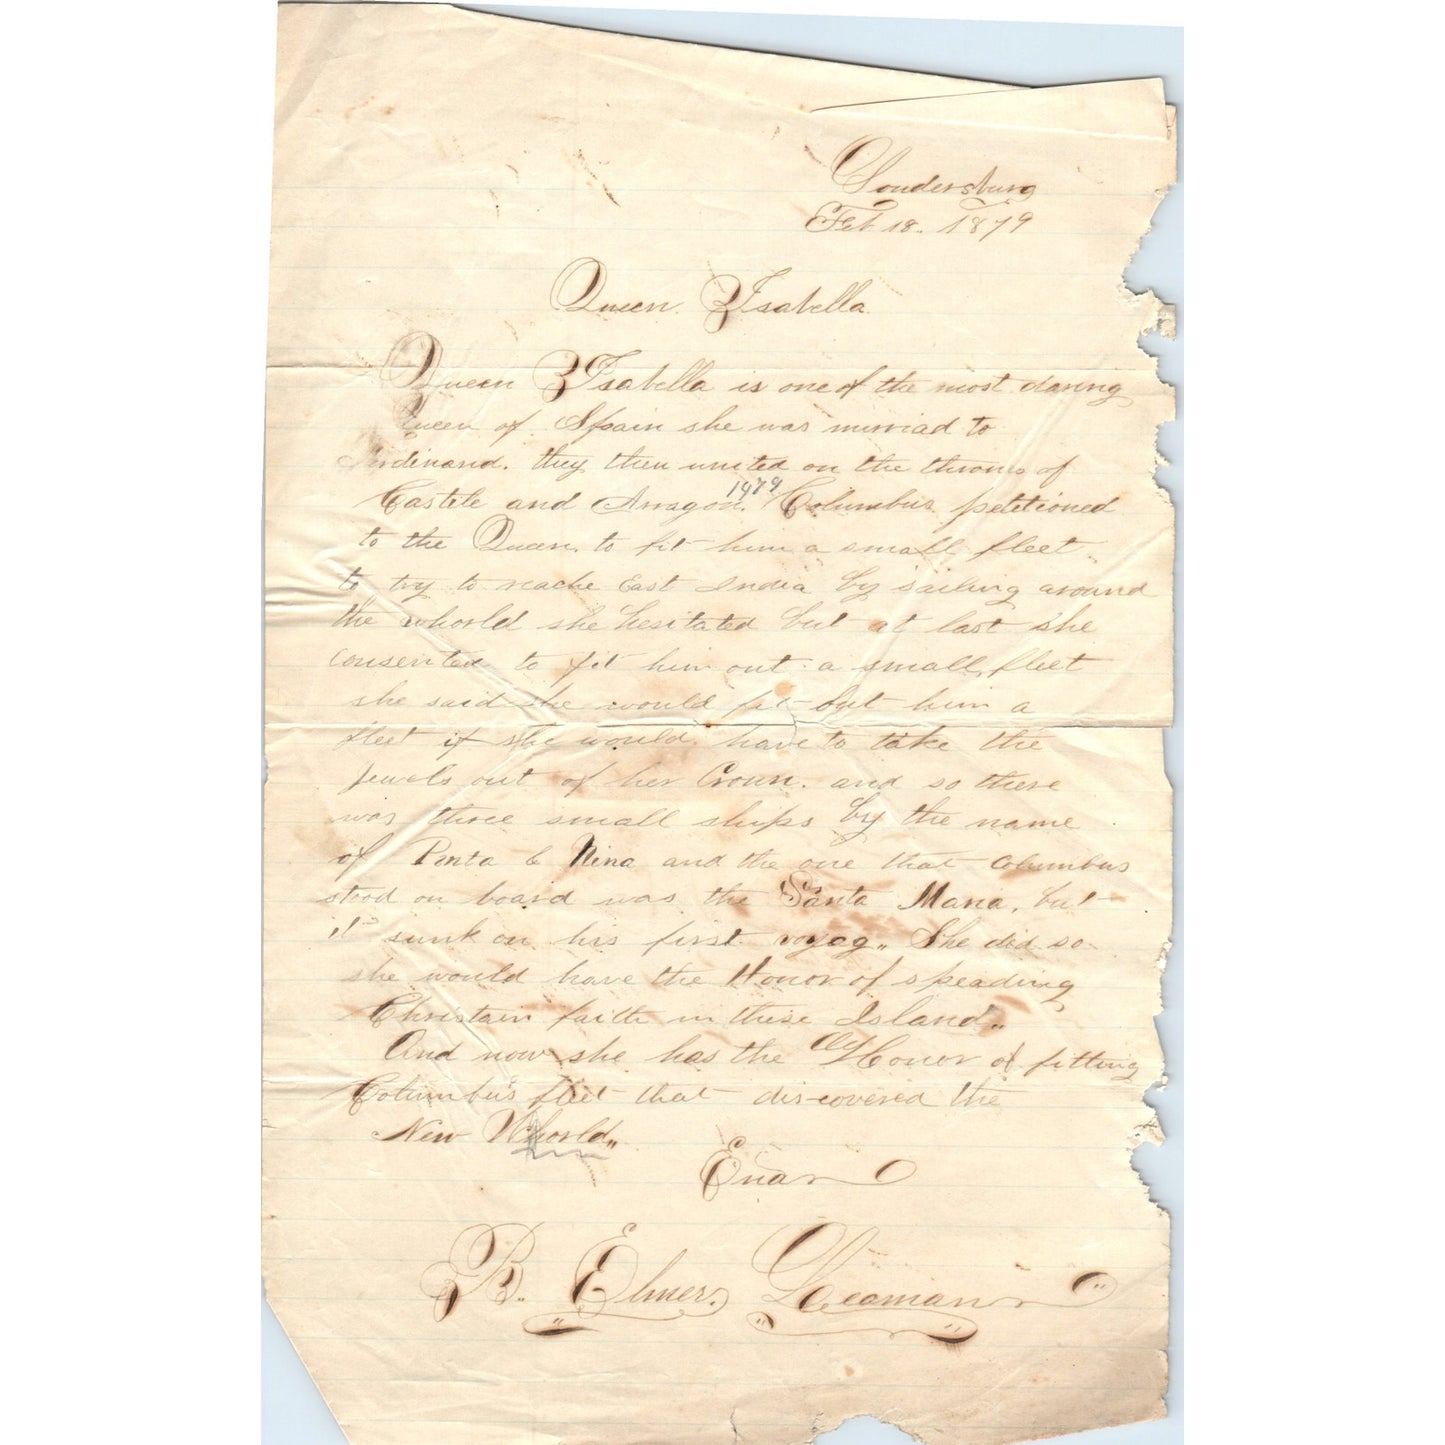 Soudersburg
Feb 18. 1879
Queen Isabella
Queen Isabella is one of the most daring
Queen of Spain she was married to
Ferdinand. they then united on the throns of
Castile and Arragon. 1479 Columbus petetioned
to the Queen, to fit him a small fleet
to try to reache East India by sailing around
the whorld she hesitated but at last she
consented to fit him out a small fleet
she said she would fit out him a
fleet if she would have to take the
jewels out of her Croun. and so there
was three small ships by the name
of Penta & Nina and the one that Columbus
stood on board was the Santa Maria, but
it sunk on his first voyag,, She did so
she would have the Honor of speading
Christain faith in these Island,,
And now she has the Honor of fitting
Columbu's fleet that discovered the
New Whorld,,
End
B. Elmer. Leaman